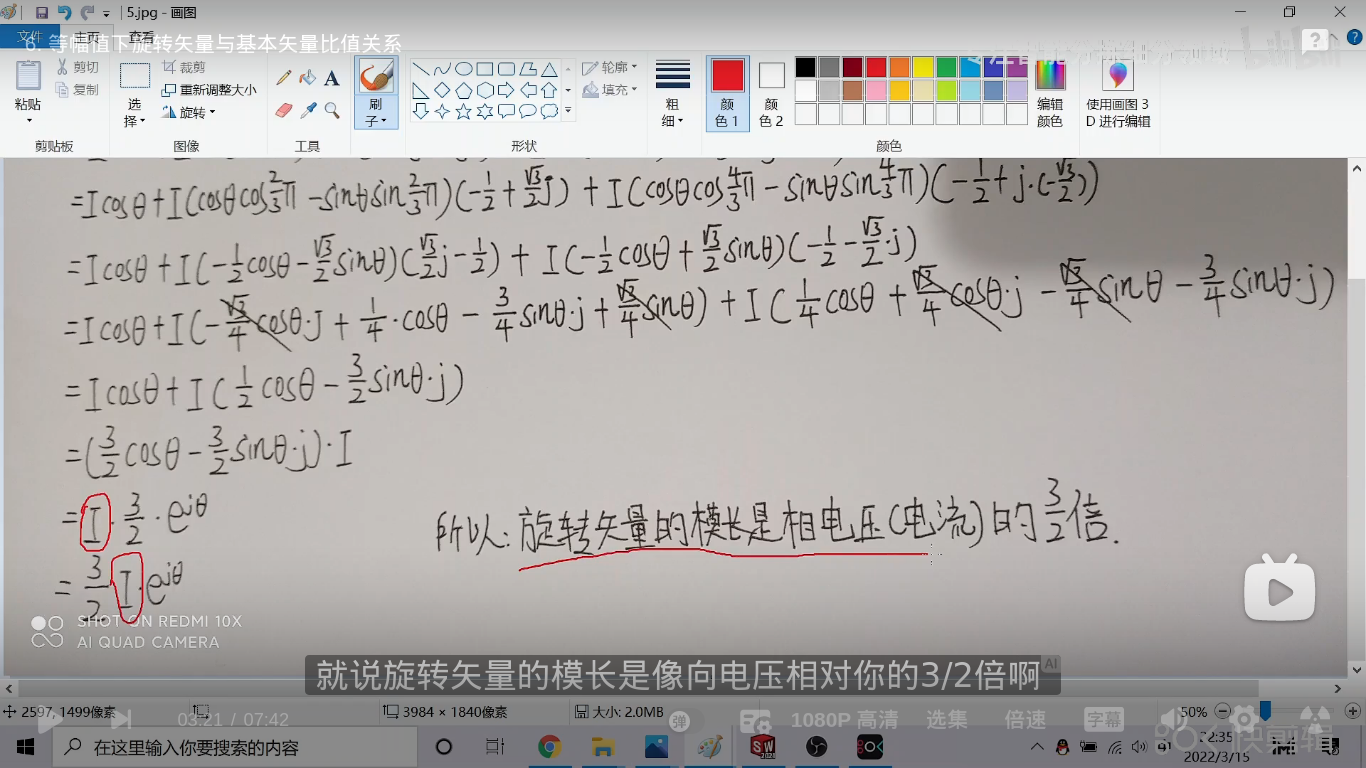 5.jpg - 画图
文件 主页 查看
6. 等幅值下旋转矢量与基本矢量比值关系
bilibili
粘贴
剪切
复制
剪贴板
选择
裁剪
重新调整大小
旋转
图像
A
工具
刷子
轮廓
填充
形状
粗细
颜色 1
颜色 2
编辑颜色
颜色
使用画图 3D 进行编辑
=Icosθ+I(cosθcos2/3π-sinθsin2/3π)(-1/2+√3/2j)+I(cosθcos4/3π-sinθsin4/3π)(-1/2+j·(-√3/2))
=Icosθ+I(-1/2cosθ-√3/2sinθ)(√3/2j-1/2)+I(-1/2cosθ+√3/2sinθ)(-1/2-√3/2·j)
=Icosθ+I(-√3/4cosθ·J+1/4·cosθ-3/4sinθ·j+√3/4sinθ)+I(1/4cosθ+√3/4cosθ·j-√3/4sinθ-3/4sinθ·j)
=Icosθ+I(1/2cosθ-3/2sinθ·j)
=(3/2cosθ-3/2sinθ·j)·I
=I·3/2·e^jθ
所以:旋转矢量的模长是相电压(电流)的3/2倍.
=3/2I·e^jθ
SHOT ON REDMI 10X
AI QUAD CAMERA
就说旋转矢量的模长是像向电压相对你的3/2倍啊
AI
2597, 1499像素
3984 × 1840像素
大小: 2.0MB
50%
03:21 / 07:42
弹
1080P 高清
选集
倍速
字幕
在这里输入你要搜索的内容
快剪辑
2022/3/15